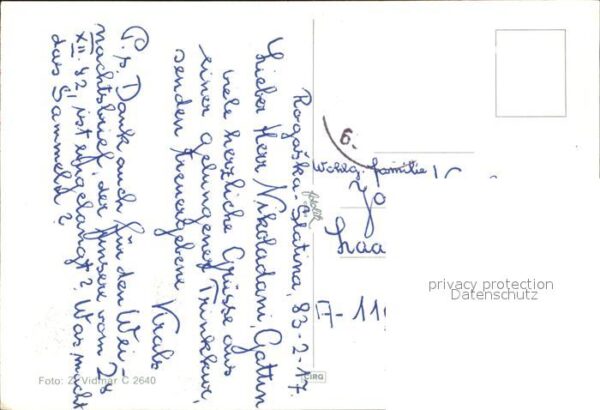 Rogaška Slatina, 83-2-17.
Lieber Herr Nikoladani, Gattin
viele herzliche Grüsse aus
einer gelungenen Trinkkur,
senden treuergebene
Krals
P.s. Dank auch für den Wei-
nachtsbrief, der unsere vom 28
XII. 82, ist eingelangt? Was macht
das Sammeln?
6.
familie
Laa
A-11
privacy protection
Datenschutz
Foto: Z. Vidmar C 2640
CIRG